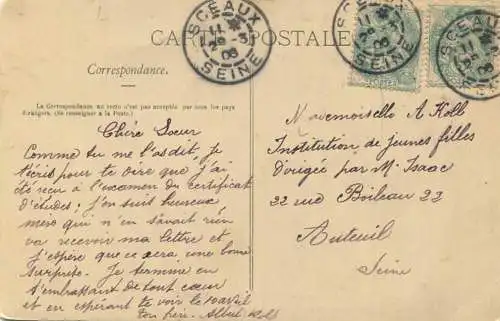 CARTE POSTALE
SCEAUX
11
29-3
06
SEINE
Correspondance.
La Correspondance au recto n'est pas acceptée par tous les pays
étrangers. (Se renseigner à la Poste.)
Chère Soeur
Comme tu me l'as dit, je
t'écris pour te dire que j'ai
été reçu à l'examen du certificat
d'études; j'en suis heureux
mère qui n'en savait rien
va recevoir ma lettre et
j'espère que ce sera une bonne
surprise. Je termine en
t'embrassant de tout coeur
et en espérant te voir le 10 avril
ton frère Albert Koll
Mademoiselle A Koll
Institution de jeunes filles
dirigée par M. Isaac
22 rue Boileau 22
Auteuil
Seine